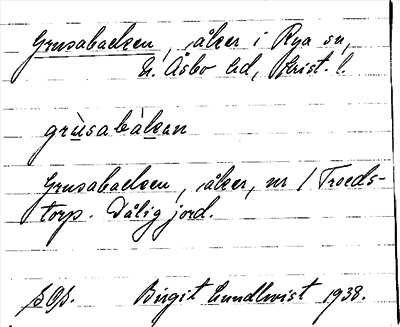 Grusabacken, åker i Rya sn,
N. Åsbo hd, Krist. l.
grùsabàkan
Grusabacken, åker, nr 1 Troeds-
torp. Dålig jord.
Birgit Lundkvist 1938.